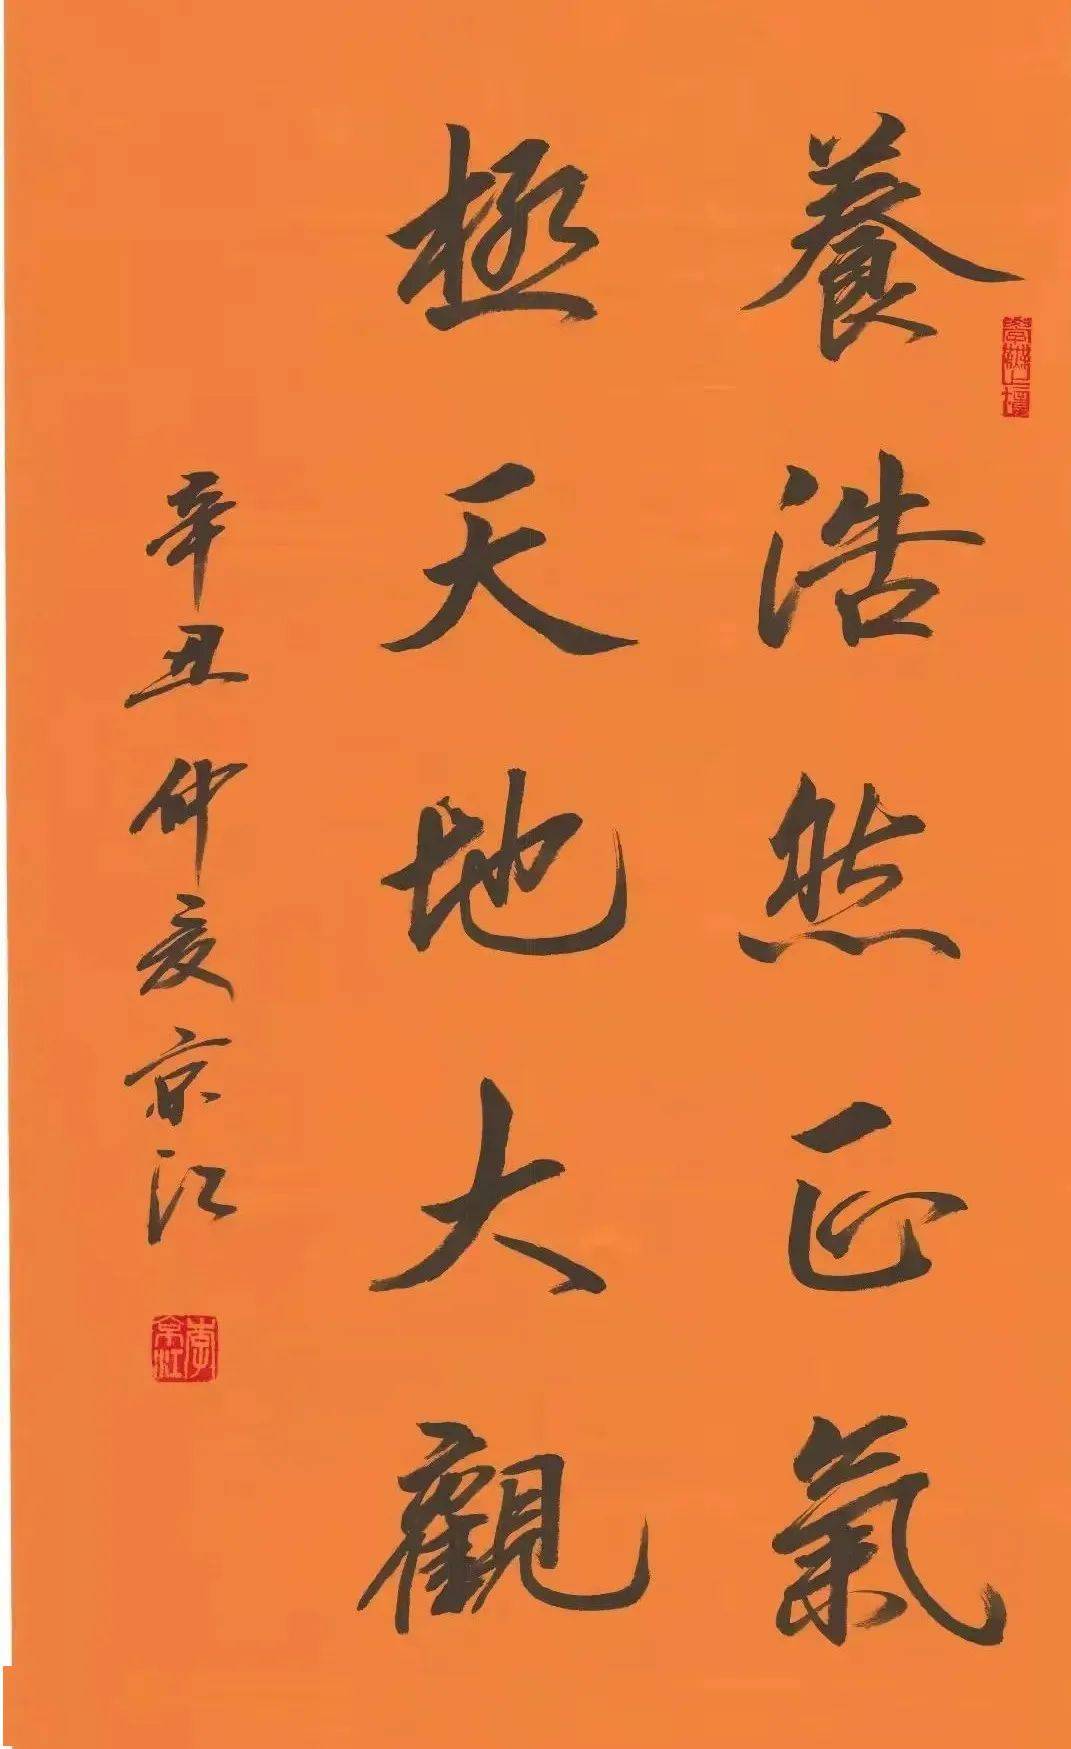 養浩然正氣
極天地大觀
辛丑仲夏京江
李京江